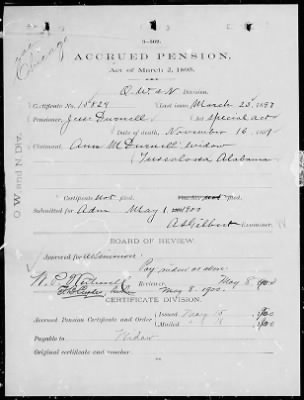 Chicago
3-509.
ACCRUED PENSION,
Act of March 2, 1895.
O. W. & N. Division.
Certificate No. 15829 Last issue, March 23, 1897
Pensioner, Jesse Durnell Act special act
Date of death, November 16, 1897
Claimant, Ann M Durnell widow
Tuscaloosa Alabama
O. W. and N. Div.
Certificate not filed.
Submitted for Adm May 1 1900
A S Gilbert Examiner.
BOARD OF REVIEW.
Approved for
Pay widow as above.
Reviewer, May 8 1900
May 8, 1900.
CERTIFICATE DIVISION.
Accrued Pension Certificate and Order Issued May 15, 1900
Mailed 1900
Payable to Widow
Original certificate and voucher